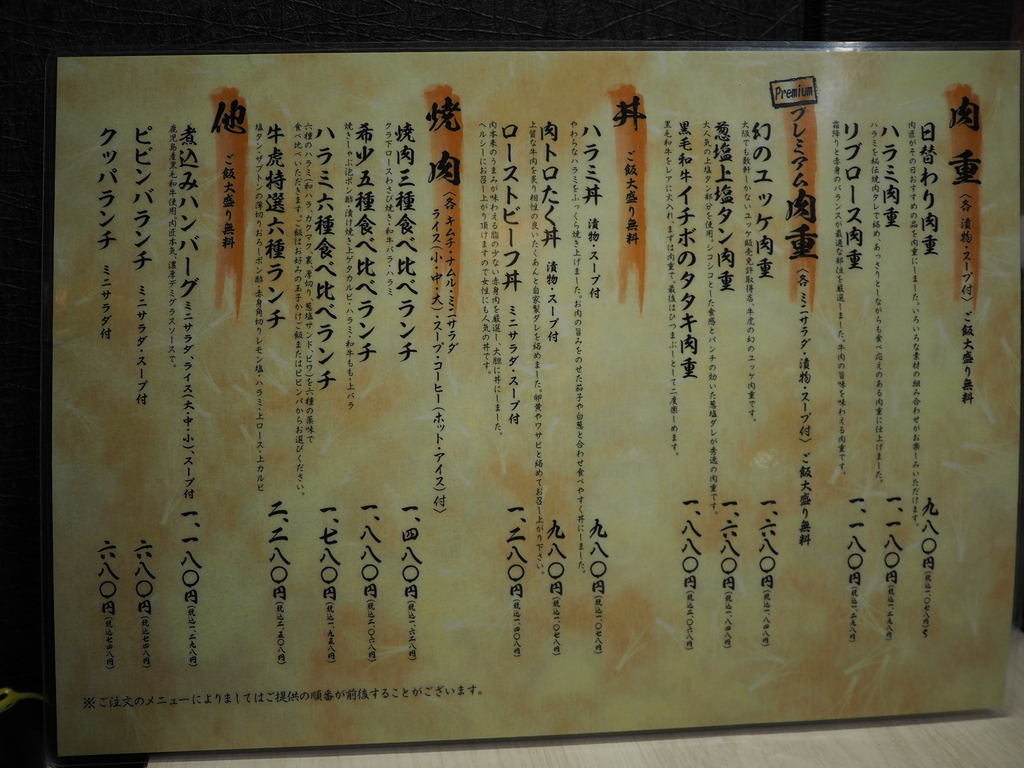 肉重（各 漬物・スープ付）ご飯大盛り無料
日替わり肉重 九八〇円（税込一、〇七八円）
肉匠がその日おすすめの品を肉重にしました。いろいろな素材の組み合わせがお楽しみいただけます。
ハラミ肉重 一、一八〇円（税込一、二九八円）
ハラミを秘伝焼肉タレで絡め、あっさりとしながらも食べ応えのある肉重に仕上げました。
リブロース肉重 一、一八〇円（税込一、二九八円）
霜降りと赤身のバランスが最適な部位を厳選しました。牛肉の旨味を味わえる肉重です。
Premium
プレミアム肉重（各 ミニサラダ・漬物・スープ付）ご飯大盛り無料
幻のユッケ肉重 一、六八〇円（税込一、八四八円）
大阪でも数軒しかないユッケ販売免許取得店、牛虎の幻のユッケ肉重です。
葱塩上塩タン肉重 一、六八〇円（税込一、八四八円）
大人気の上塩タン部分を使用。シコシコとした食感とパンチの効いた葱塩ダレが秀逸の肉重です。
黒毛和牛イチボのタタキ肉重 一、八八〇円（税込二、〇六八円）
黒毛和牛をレアに火入れ、まずは肉重で。最後はひつまぶしとして二度楽しめます。
丼 ご飯大盛り無料
ハラミ丼 漬物・スープ付 九八〇円（税込一、〇七八円）
やわらなハラミをふっくら焼き上げました。お肉の旨みをのせた茄子や白葱と合わせ食べやすく丼にしました。
肉トロたく丼 漬物・スープ付 九八〇円（税込一、〇七八円）
上質な牛肉を炙り相性の良いたくあんと自家製ダレを絡めました。卵黄やワサビと絡めてお召し上がり下さい。
ローストビーフ丼 ミニサラダ・スープ付 一、二八〇円（税込一、四〇八円）
肉本来のうまみが味わえる脂の少ない赤身肉を厳選し、大胆に丼にしました。
ヘルシーにお召し上がり頂けますので女性にも人気の丼です。
焼肉（各 キムチ・ナムル・ミニサラダ
ライス（小・中・大）・スープ・コーヒー（ホット・アイス）付）
焼肉三種食べ比べランチ 一、四八〇円（税込一、六二八円）
クラ下ロースわさび焼き・和牛バラ・ハラミ
希少五種食べ比べランチ 一、八八〇円（税込二、〇六八円）
焼きしゃぶ泡ポン酢・漬け焼き上ゲタカルビ・ハラミ・和牛もも・上バラ
ハラミ六種食べ比べランチ 一、七八〇円（税込一、九五八円）
六種のハラミ（和ハラ・カクマク・裏・厚切り・葱塩サンド・ビワ）を六種の薬味で
食べ比べいただきます。ご飯はお好みの玉子かけご飯またはビビンバからお選びください。
牛虎特選六種ランチ 二、二八〇円（税込二、五〇八円）
塩タン・ザブトンの薄切りおろしポン酢・赤身角切りレモン塩・ハラミ・上ロース・上カルビ
他 ご飯大盛り無料
煮込みハンバーグ ミニサラダ、ライス（大・中・小）、スープ付 一、一八〇円（税込一、二九八円）
鹿児島産黒毛和牛使用。肉匠本気、濃厚デミグラスソースで。
ビビンバランチ ミニサラダ・スープ付 六八〇円（税込七四八円）
クッパランチ ミニサラダ付 六八〇円（税込七四八円）
※ご注文のメニューによりましてはご提供の順番が前後することがございます。